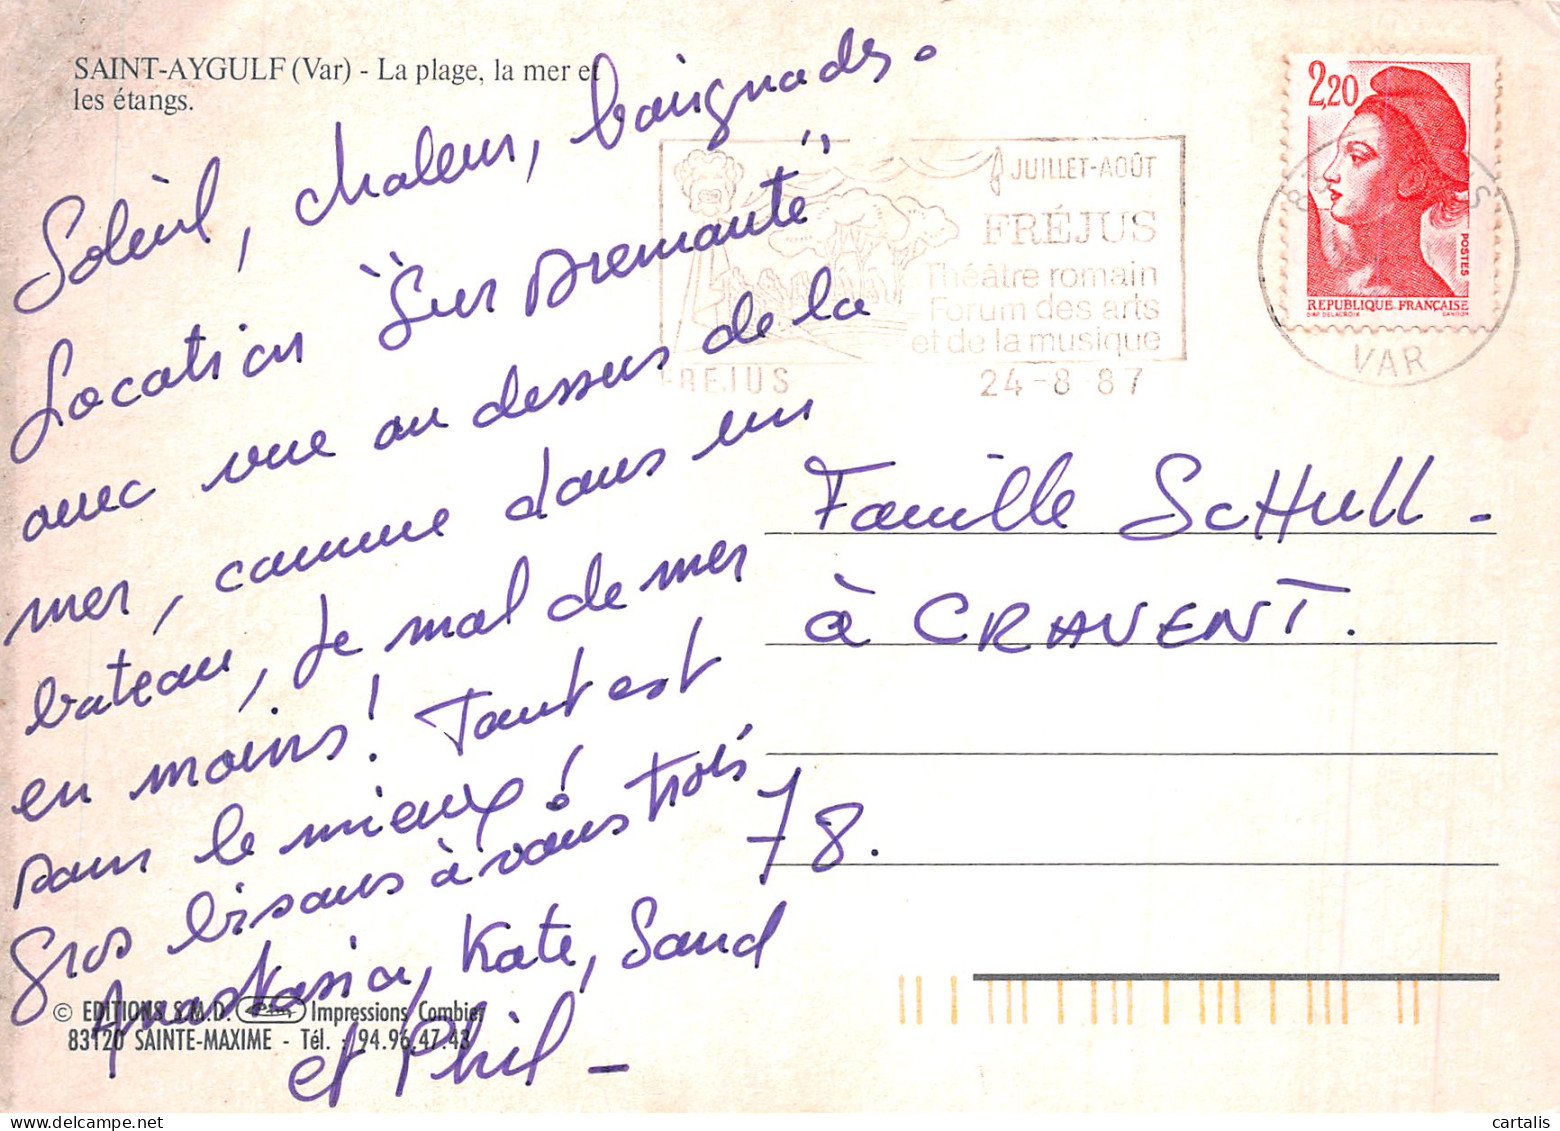 SAINT-AYGULF (Var) - La plage, la mer et
les étangs.
Soleil, chaleur, baignades.
Location "Surprenante"
avec vue au dessus de la
mer, comme dans un
bateau, le mal de mer
en moins! Tant est
pour le mieux!
Gros bisous à vous trois
Anastasia, Kate, Sand
et Phil -
© EDITIONS S.M.D. Impressions Combier
83120 SAINTE-MAXIME - Tél. : 94.96.47.43
JUILLET-AOÛT
FRÉJUS
Théâtre romain
Forum des arts
et de la musique
FREJUS
24-8 87
2,20
POSTES
REPUBLIQUE FRANÇAISE
D'AP DELACROIX
GANDON
VAR
Famille ScHull -
à CRAVENT.
78.
cartalis